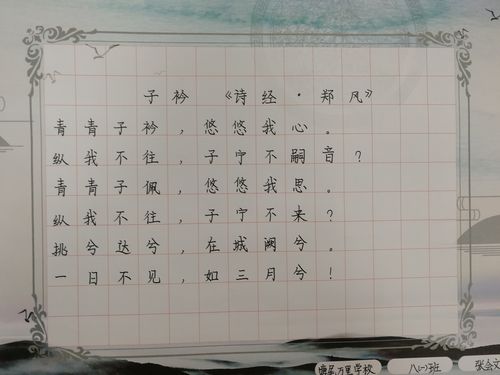 子衿 《诗经·郑风》
青青子衿，悠悠我心。
纵我不往，子宁不嗣音？
青青子佩，悠悠我思。
纵我不往，子宁不来？
挑兮达兮，在城阙兮。
一日不见，如三月兮！
万里学校 八(一)班 张会文